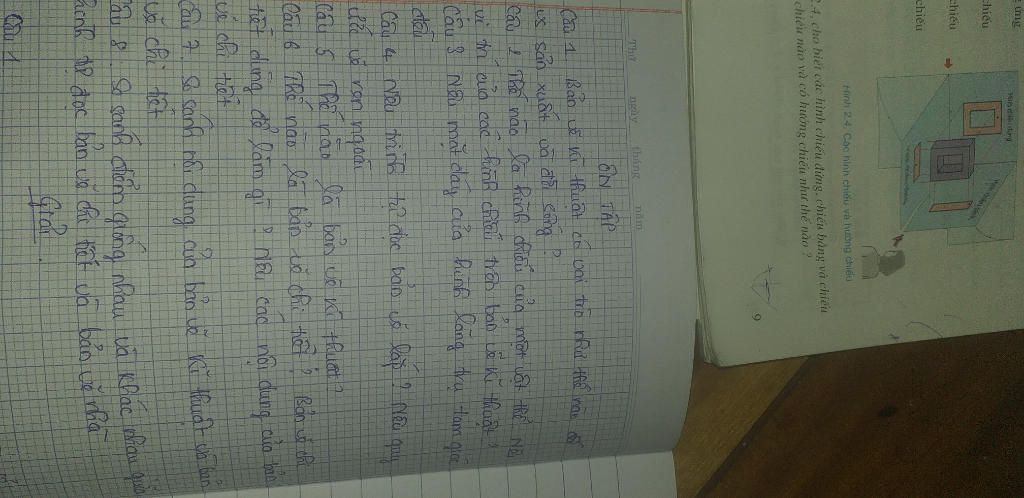 chiếu
chiếu
chiếu
Hình 2.4. Các hình chiếu và hướng chiếu
2.4, cho biết các hình chiếu đứng, chiếu bằng và chiếu
chiếu nào và có hướng chiếu như thế nào?
9
Thứ ngày tháng năm
ÔN TẬP
Câu 1 Bản vẽ kĩ thuật có vai trò như thế nào đối
vs sản xuất và đời sống?
Câu 2 Thế nào là hình chiếu của một vật thể Nêu
vị trí của các hình chiếu trên bản vẽ kĩ thuật?
Câu 3 Nêu mặt đáy của hình lăng trụ tam giác
đều
Câu 4 Nêu trình tự đọc bản vẽ lắp? Nêu quy
ước vẽ ren ngoài
Câu 5 Thế nào là bản vẽ kĩ thuật?
Câu 6 Thế nào là bản vẽ chi tiết? Bản vẽ chi
tiết dùng để làm gì? Nêu các nội dung của bản
vẽ chi tiết
Câu 7. So sánh nội dung của bản vẽ kĩ thuật và bản
vẽ chi tiết
Câu 8. So sánh điểm giống nhau và khác nhau
trình tự đọc bản vẽ chi tiết và bản vẽ nhà
Giải.
Câu 1